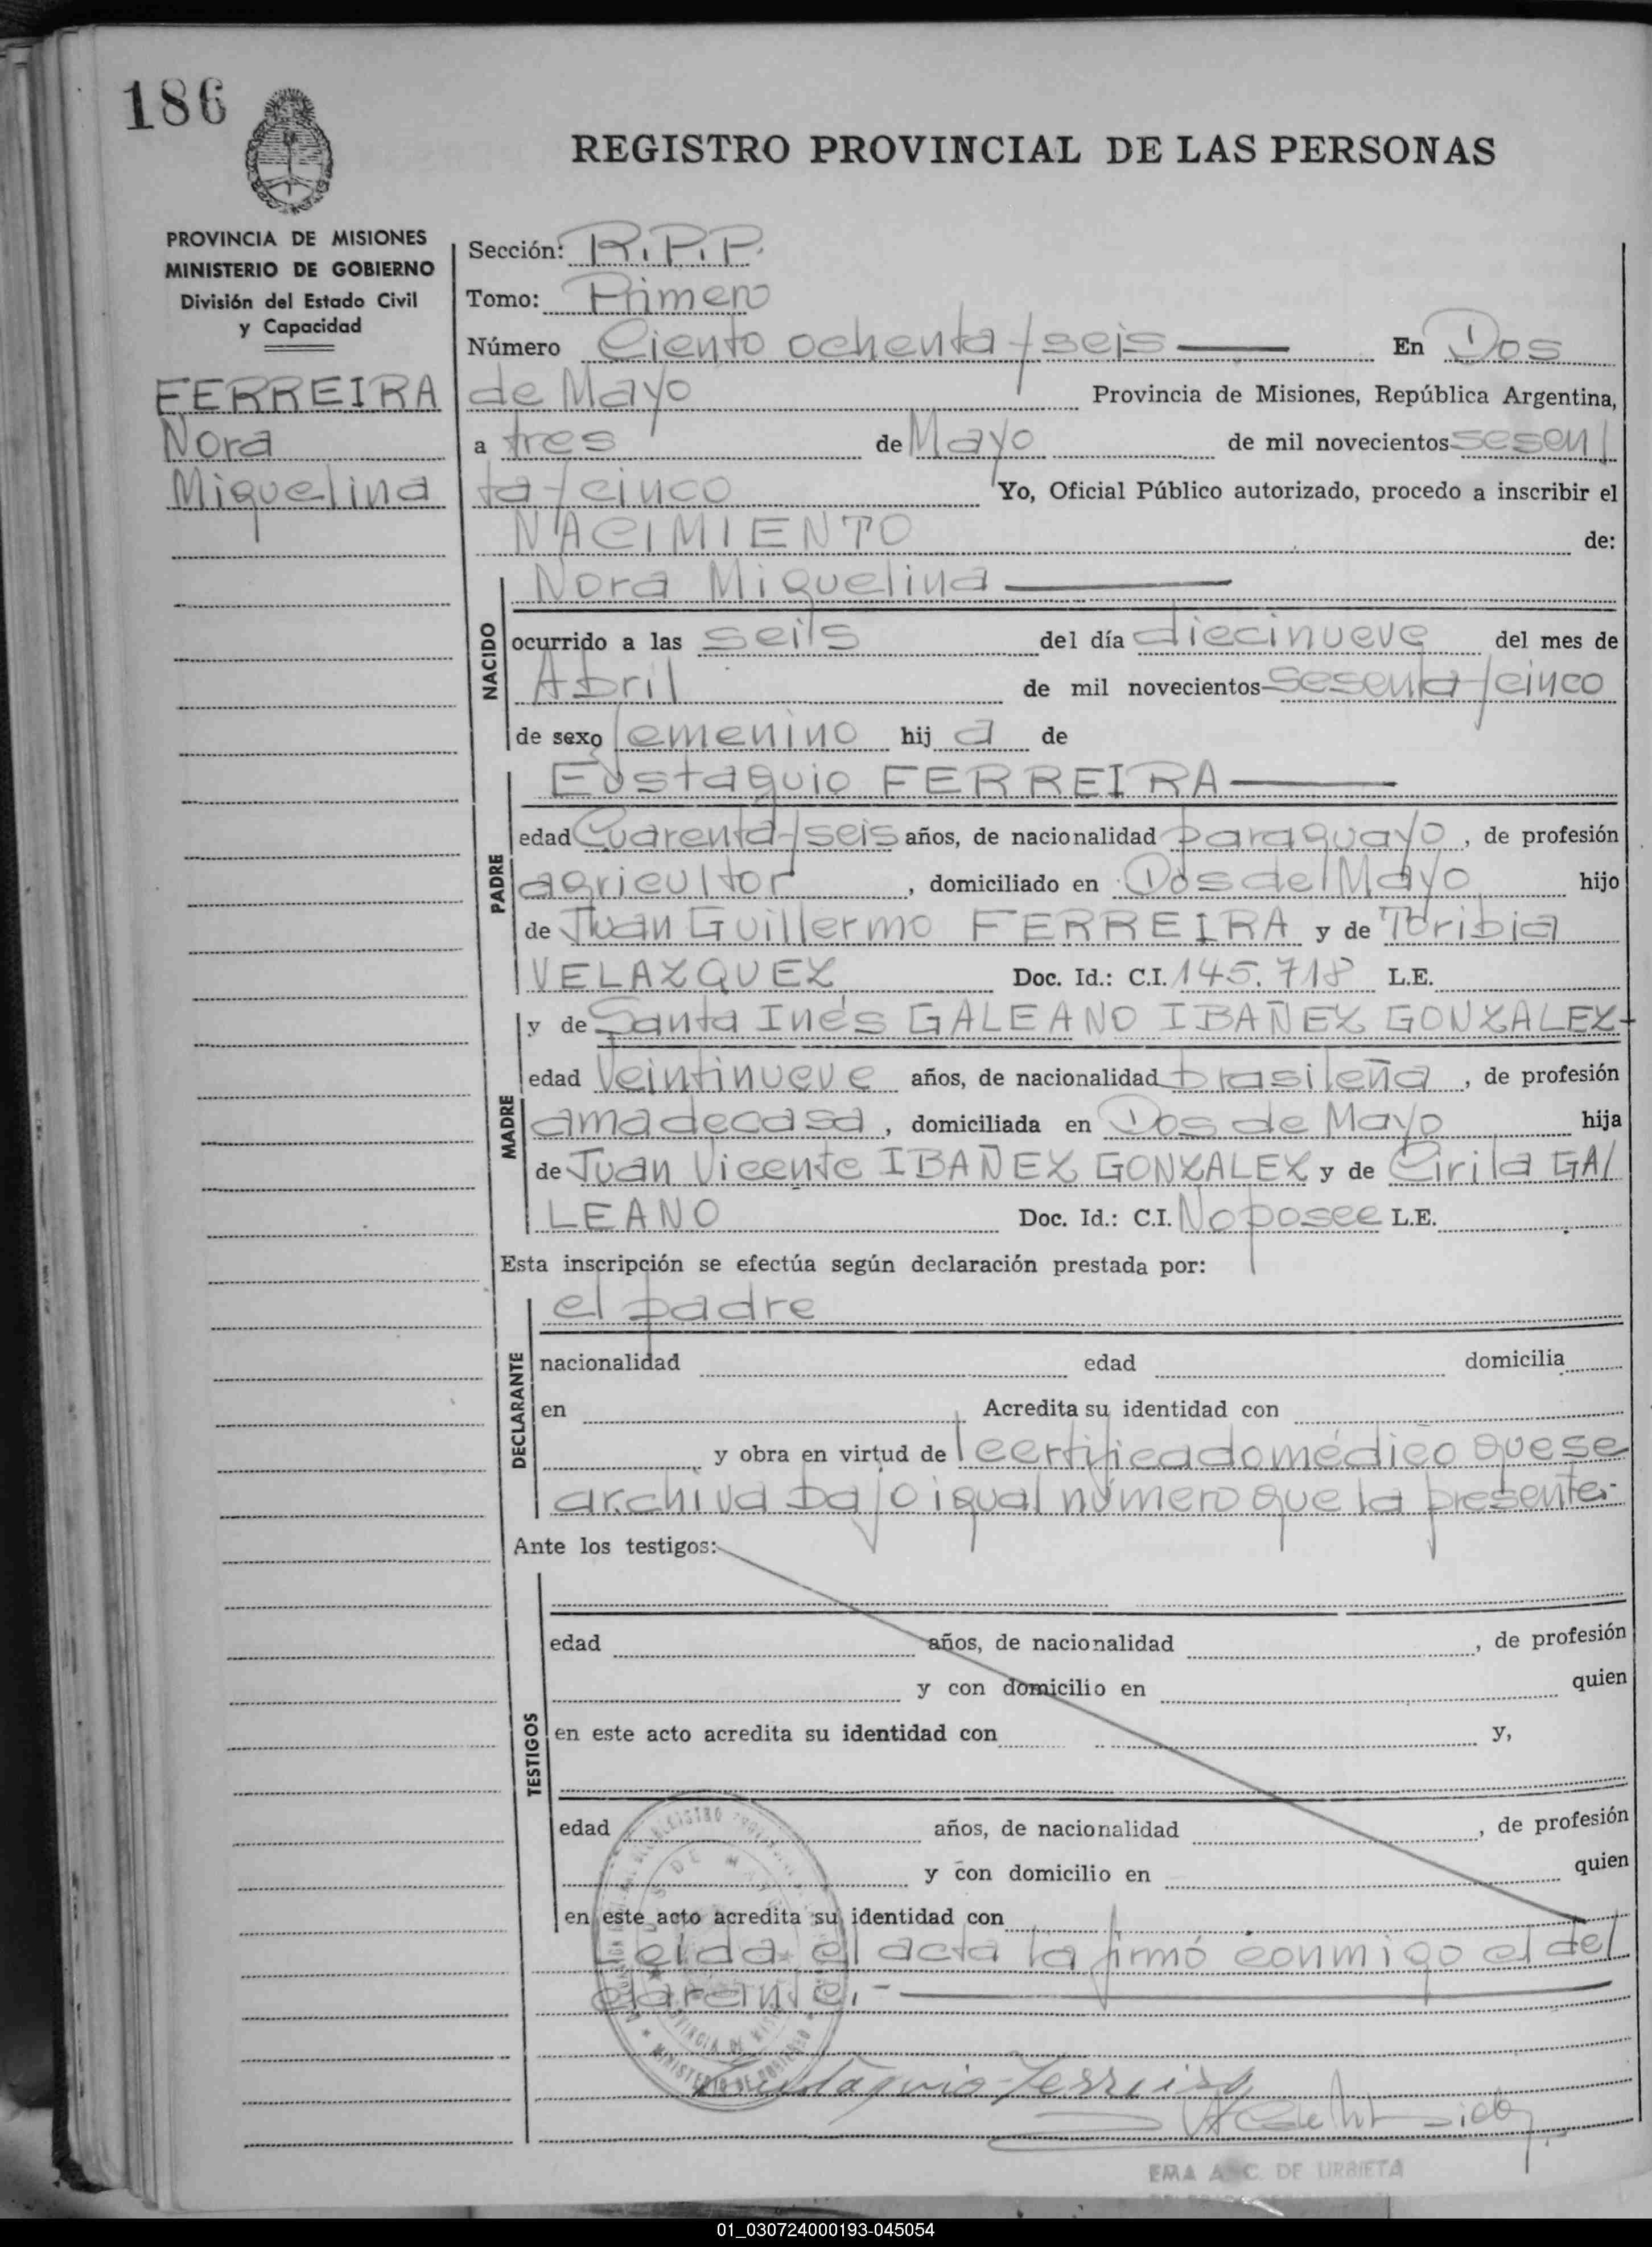 186
REGISTRO PROVINCIAL DE LAS PERSONAS
PROVINCIA DE MISIONES
MINISTERIO DE GOBIERNO
División del Estado Civil
y Capacidad
FERREIRA
Nora
Miguelina
Sección: R.P.P.
Tomo: Primero
Número Ciento ochenta y seis En Dos
de Mayo Provincia de Misiones, República Argentina,
a tres de Mayo de mil novecientos sesen
ta y cinco Yo, Oficial Público autorizado, procedo a inscribir el
NACIMIENTO de:
NACIDO
Nora Miguelina
ocurrido a las seis del día diecinueve del mes de
Abril de mil novecientos sesenta y cinco
de sexo femenino hij a de
PADRE
Eustaquio FERREIRA
edad Cuarenta y seis años, de nacionalidad paraguayo, de profesión
agricultor, domiciliado en Dos de Mayo hijo
de Juan Guillermo FERREIRA y de Toribia
VELAZQUEZ Doc. Id.: C.I. 145.718 L.E.
MADRE
y de Santa Inés GALEANO IBAÑEZ GONZALEZ
edad Veintinueve años, de nacionalidad brasileña, de profesión
ama de casa, domiciliada en Dos de Mayo hija
de Juan Vicente IBAÑEZ GONZALEZ y de Cirila GA/
LEANO Doc. Id.: C.I. No posee L.E.
Esta inscripción se efectúa según declaración prestada por:
DECLARANTE
el padre
nacionalidad edad domicilia
en Acredita su identidad con
y obra en virtud de l certificado médico que se
archiva bajo igual número que la presente.-
Ante los testigos:
TESTIGOS
edad años, de nacionalidad , de profesión
y con domicilio en quien
en este acto acredita su identidad con y,
edad años, de nacionalidad , de profesión
y con domicilio en quien
en este acto acredita su identidad con
Leída el acta la firmó conmigo el de/
clarante.-
Eustaquio Ferreira
EMA A. C. DE URBIETA
01_030724000193-045054